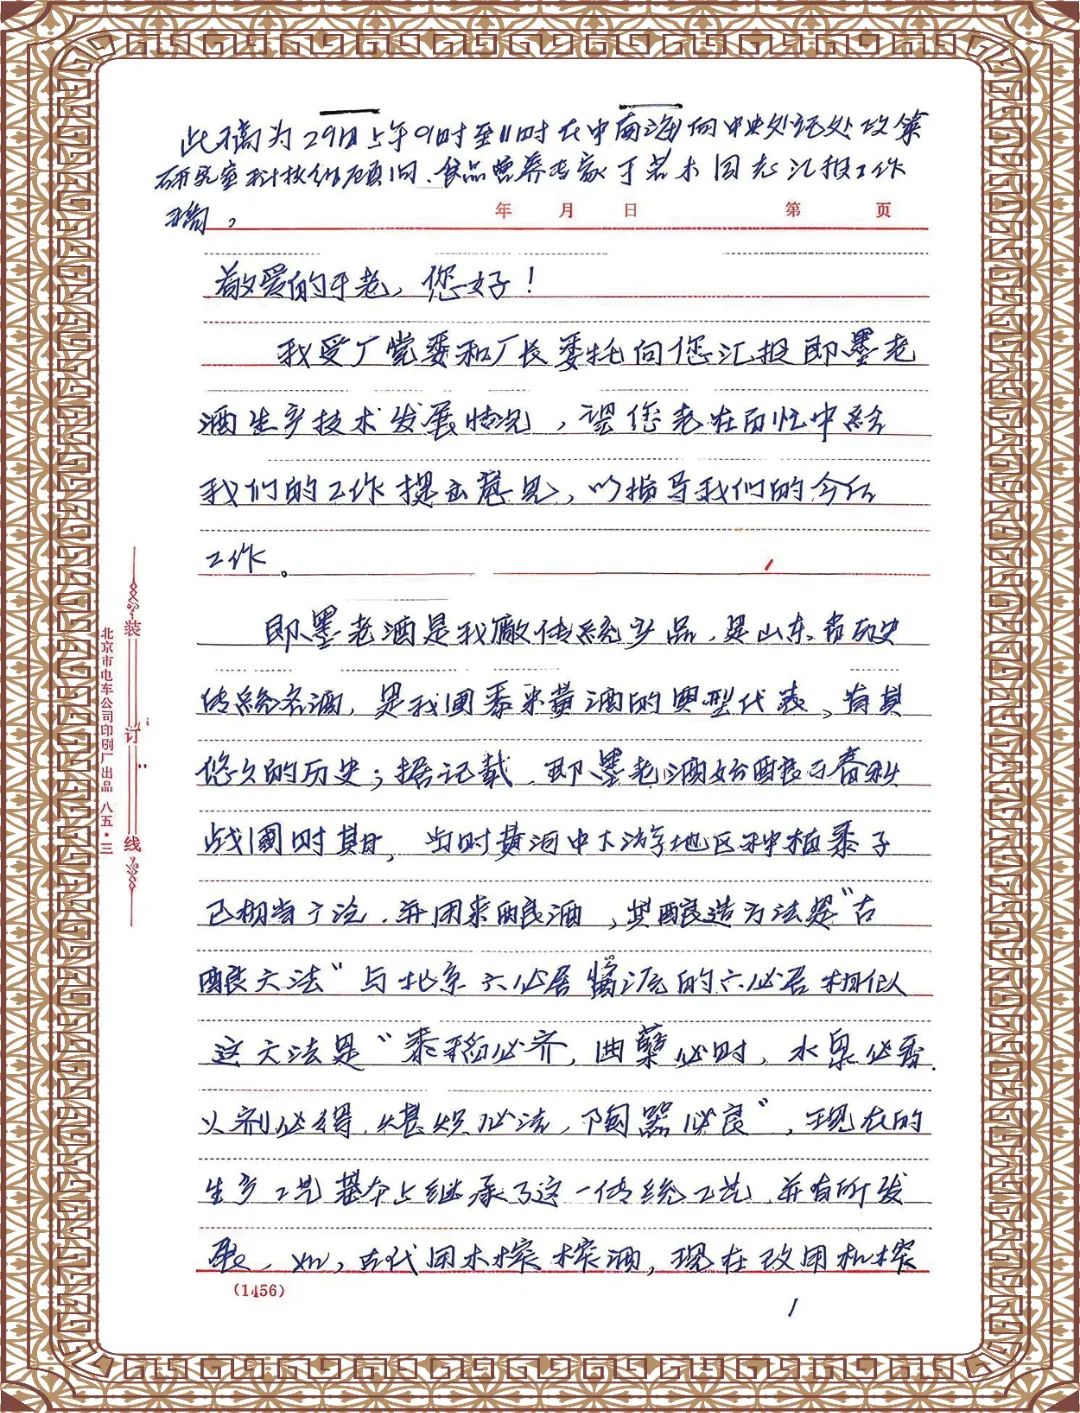 此稿为29日上午9时至11时在中南海向中央书记处政策
研究室科技组顾问、食品营养专家于若木同志汇报工作
稿。
年 月 日 第 页
敬爱的于老，您好！
我受厂党委和厂长委托向您汇报即墨老
酒生产技术发展情况，望您老在百忙中给
我们的工作提出意见，以指导我们的今后
工作。
即墨老酒是我厰传统产品，是山东省历史
传统名酒，是我国黍米黄酒的典型代表，有其
悠久的历史；据记载，即墨老酒始酿于春秋
战國时期，当时黄河中下游地区种植黍子
已相当广泛，并用来酿酒，其酿造方法是“古
酿六法”与北京六必居酱源的六必居相似
这六法是“黍稻必齐，曲蘖必时，水泉必香
火剂必得，湛炽必洁，陶器必良”，现在的
生产工艺基本上继承了这一传统工艺，并有所发
展，如，古代用木榨榨酒，现在改用机榨
(1456)
1
装订线
北京市电车公司印刷厂出品 八五·三